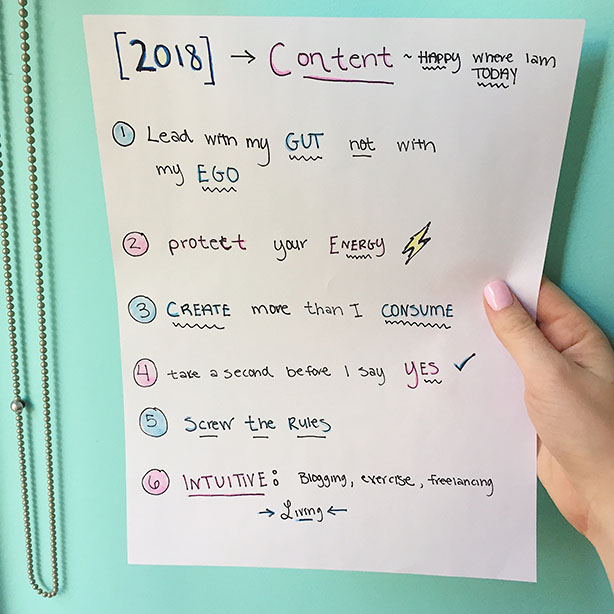 [2018] → Content ~ HAPPY where I am
TODAY
1 Lead with my GUT not with
my EGO
2 protect your ENERGY
3 CREATE more than I CONSUME
4 take a second before I say YES ✓
5 Screw the Rules
6 INTUITIVE: Blogging, exercise, freelancing
→ Living ←